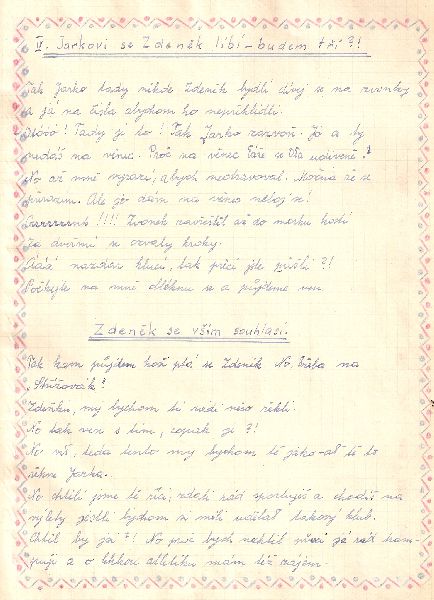 V. Jarkovi se Zdeněk líbí – budem tři?!
Tak Jarko tady někde Zdeněk bydlí dívej se na zvonky
a já na čísla abychom ho nepřehlédli.
Óóóó! Tady je to! Tak Jarko zazvoň. Já a ty
nedáš na věnec. Proč na věnec táže se Ota udiveně?
No až mně vyrazí, abych neotravoval. Možná že se
přivazu. Ale jo dám na věnec neboj se!
Crrrrrrrnk!!!! Zvonek zavřeštěl až do morku kostí
Za dveřmi se ozvaly kroky.
Áááá nazdar kluci, tak přeci jste přišli?!
Počkejte na mně obléknu se a půjdeme ven.
Zdeněk se vším souhlasí.
Tak kam půjdem hoši ptá se Zdeněk No třeba na
„Střížovák“?
Zdeňku, my bychom ti rádi něco řekli.
No tak ven s tím, copak je?!
No víš, teda tento my bychom tě jako – ať ti to
řekne Jarka.
No chtěli jsme tě říci, zdali rád sportuješ a chodíš na
výlety jestli bychom si měli udělat takový klub.
Chtěl by já?! No proč bych nechtěl vždyť já rád kem-
puji a o lehkou atletiku mám též zájem.